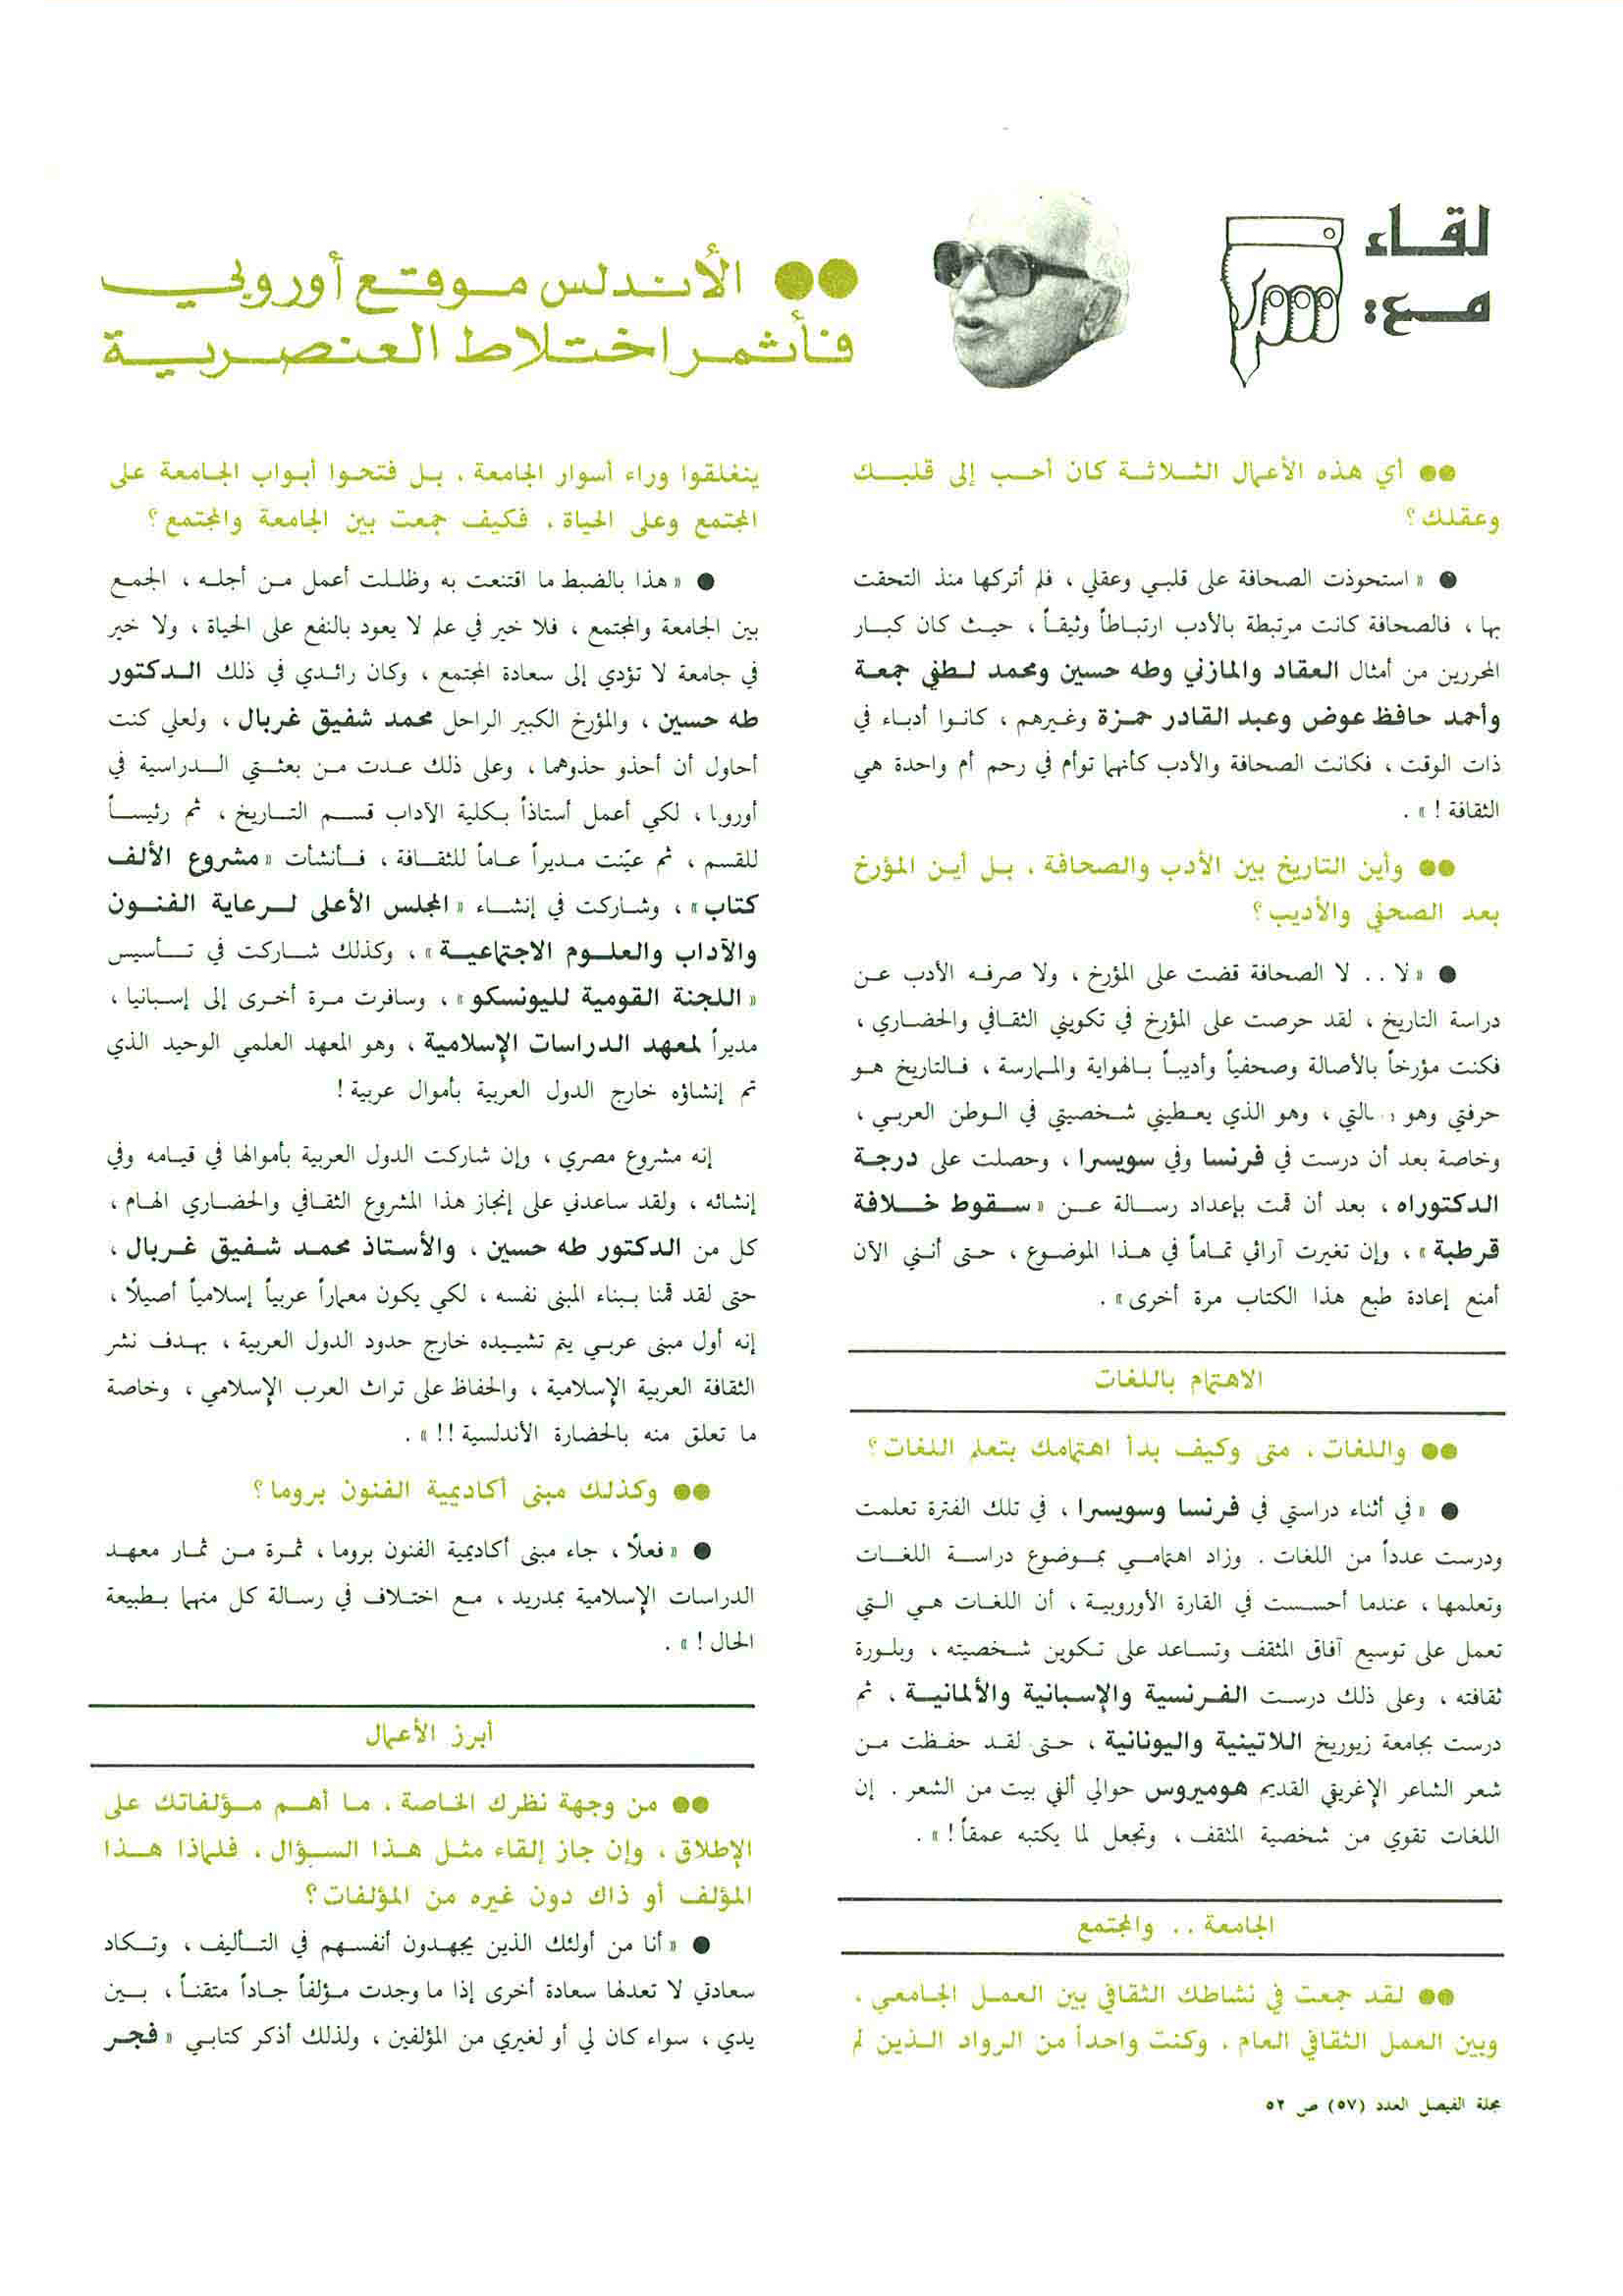 لقاء
مع:
●● الأندلس موقع أوروبي
فأثمر اختلاط العنصرية
●● أي هذه الأعمال الثلاثة كان أحب إلى قلبك
وعقلك؟
● « استحوذت الصحافة على قلبي وعقلي ، فلم أتركها منذ التحقت
بها ، فالصحافة كانت مرتبطة بالأدب ارتباطاً وثيقاً ، حيث كان كبار
المحررين من أمثال العقاد والمازني وطه حسين ومحمد لطفي جمعة
وأحمد حافظ عوض وعبد القادر حمزة وغيرهم ، كانوا أدباء في
ذات الوقت ، فكانت الصحافة والأدب كأنهما توأم في رحم أم واحدة هي
الثقافة ! » .
●● وأين التاريخ بين الأدب والصحافة ، بل أين المؤرخ
بعد الصحفي والأديب؟
● « لا .. لا الصحافة قضت على المؤرخ ، ولا صرفه الأدب عن
دراسة التاريخ ، لقد حرصت على المؤرخ في تكويني الثقافي والحضاري ،
فكنت مؤرخاً بالأصالة وصحفياً وأديباً بالهواية والممارسة ، فالتاريخ هو
حرفتي وهو رسالتي ، وهو الذي يعطيني شخصيتي في الوطن العربي ،
وخاصة بعد أن درست في فرنسا وفي سويسرا ، وحصلت على درجة
الدكتوراه ، بعد أن قمت بإعداد رسالة عن « سقوط خلافة
قرطبة » ، وإن تغيرت آرائي تماماً في هذا الموضوع ، حتى أنني الآن
أمنع إعادة طبع هذا الكتاب مرة أخرى » .
الاهتمام باللغات
●● واللغات ، متى وكيف بدأ اهتمامك بتعلم اللغات؟
● « في أثناء دراستي في فرنسا وسويسرا ، في تلك الفترة تعلمت
ودرست عدداً من اللغات . وزاد اهتمامي بموضوع دراسة اللغات
وتعلمها ، عندما أحسست في القارة الأوروبية ، أن اللغات هي التي
تعمل على توسيع آفاق المثقف وتساعد على تكوين شخصيته ، وبلورة
ثقافته ، وعلى ذلك درست الفرنسية والإسبانية والألمانية ، ثم
درست بجامعة زيوريخ اللاتينية واليونانية ، حتى لقد حفظت من
شعر الشاعر الإغريقي القديم هوميروس حوالي ألفي بيت من الشعر . إن
اللغات تقوي من شخصية المثقف ، وتجعل لما يكتبه عمقاً ! » .
الجامعة .. والمجتمع
●● لقد جمعت في نشاطك الثقافي بين العمل الجامعي ،
وبين العمل الثقافي العام ، وكنت واحداً من الرواد الذين لم
ينغلقوا وراء أسوار الجامعة ، بل فتحوا أبواب الجامعة على
المجتمع وعلى الحياة ، فكيف جمعت بين الجامعة والمجتمع؟
● « هذا بالضبط ما اقتنعت به وظللت أعمل من أجله ، الجمع
بين الجامعة والمجتمع ، فلا خير في علم لا يعود بالنفع على الحياة ، ولا خير
في جامعة لا تؤدي إلى سعادة المجتمع ، وكان رائدي في ذلك الدكتور
طه حسين ، والمؤرخ الكبير الراحل محمد شفيق غربال ، ولعلي كنت
أحاول أن أحذو حذوهما ، وعلى ذلك عدت من بعثتي الدراسية في
أوروبا ، لكي أعمل أستاذاً بكلية الآداب قسم التاريخ ، ثم رئيساً
للقسم ، ثم عيّنت مديراً عاماً للثقافة ، فأنشأت « مشروع الألف
كتاب » ، وشاركت في إنشاء « المجلس الأعلى لرعاية الفنون
والآداب والعلوم الاجتماعية » ، وكذلك شاركت في تأسيس
« اللجنة القومية لليونسكو » ، وسافرت مرة أخرى إلى إسبانيا ،
مديراً لمعهد الدراسات الإسلامية ، وهو المعهد العلمي الوحيد الذي
تم إنشاؤه خارج الدول العربية بأموال عربية !
إنه مشروع مصري ، وإن شاركت الدول العربية بأموالها في قيامه وفي
إنشائه ، ولقد ساعدني على إنجاز هذا المشروع الثقافي والحضاري الهام ،
كل من الدكتور طه حسين ، والأستاذ محمد شفيق غربال ،
حتى لقد قمنا ببناء المبنى نفسه ، لكي يكون معماراً عربياً إسلامياً أصيلًا ،
إنه أول مبنى عربي يتم تشييده خارج حدود الدول العربية ، بهدف نشر
الثقافة العربية الإسلامية ، والحفاظ على تراث العرب الإسلامي ، وخاصة
ما تعلق منه بالحضارة الأندلسية !! » .
●● وكذلك مبنى أكاديمية الفنون بروما؟
● « فعلًا ، جاء مبنى أكاديمية الفنون بروما ، ثمرة من ثمار معهد
الدراسات الإسلامية بمدريد ، مع اختلاف في رسالة كل منهما بطبيعة
الحال ! » .
أبرز الأعمال
●● من وجهة نظرك الخاصة ، ما أهم مؤلفاتك على
الإطلاق ، وإن جاز إلقاء مثل هذا السؤال ، فلماذا هذا
المؤلف أو ذاك دون غيره من المؤلفات؟
● « أنا من أولئك الذين يجهدون أنفسهم في التأليف ، وتكاد
سعادتي لا تعدلها سعادة أخرى إذا ما وجدت مؤلفاً جاداً متقناً ، بين
يدي ، سواء كان لي أو لغيري من المؤلفين ، ولذلك أذكر كتابي « فجر
مجلة الفيصل العدد (٥٧) ص ٥٢